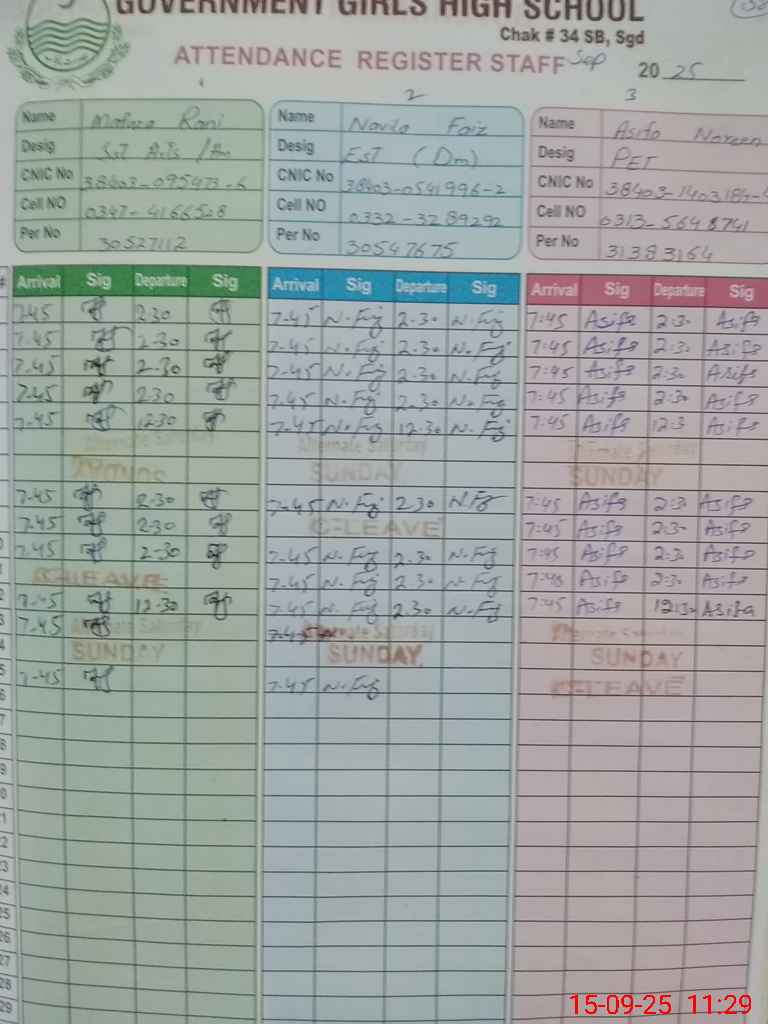 GOVERNMENT GIRLS HIGH SCHOOL
Chak # 34 SB, Sgd
ATTENDANCE REGISTER STAFF Sep 2025
2 3
Name Rani Name Navila Faiz Name Asifa Noreen
Desig SST Desig EST (Dm) Desig PET
CNIC No 38403-095473-6 CNIC No 38403-0541996-2 CNIC No 38403-1403184-
Cell NO 0347-4166528 Cell NO 0332-3289292 Cell NO 0313-5648741
Per No 30527112 Per No 30547675 Per No 31383164
Arrival Sig Departure Sig Arrival Sig Departure Sig Arrival Sig Departure Sig
7-45 2.30 7-45 N.Fz 2.30 N.Fz 7:45 Asifa 2:30 Asifa
7-45 2-30 7-45 N.Fz 2.30 N.Fz 7:45 Asifa 2:30 Asifa
7-45 2-30 7-45 N.Fz 2.30 N.Fz 7:45 Asifa 2:30 Asifa
7-45 2.30 7-45 N.Fz 2.30 N.Fz 7:45 Asifa 2:30 Asifa
7-45 12-30 7-45 N.Fz 12-30 N.Fz 7:45 Asifa 12:3 Asifa
Alternate Saturday Alternate Saturday Alternate Saturday
SUNDAY SUNDAY
7-45 2-30 7-45 N.Fz 2.30 N.Fz 7:45 Asifa 2:3 Asifa
7-45 2-30 C-LEAVE 7:45 Asifa 2:30 Asifa
7-45 2-30 7-45 N.Fz 2.30 N.Fz 7:45 Asifa 2:3 Asifa
C-LEAVE 7-45 N.Fz 2.30 N.Fz 7:45 Asifa 2:30 Asifa
7-45 12-30 7-45 N.Fz 2.30 N.Fz 7:45 Asifa 12:30 Asifa
7-45 Alternate Saturday 7-45 Alternate Saturday Alternate Saturday
SUNDAY SUNDAY SUNDAY
7-45 7-45 N.Fz C-LEAVE
15-09-25 11:29